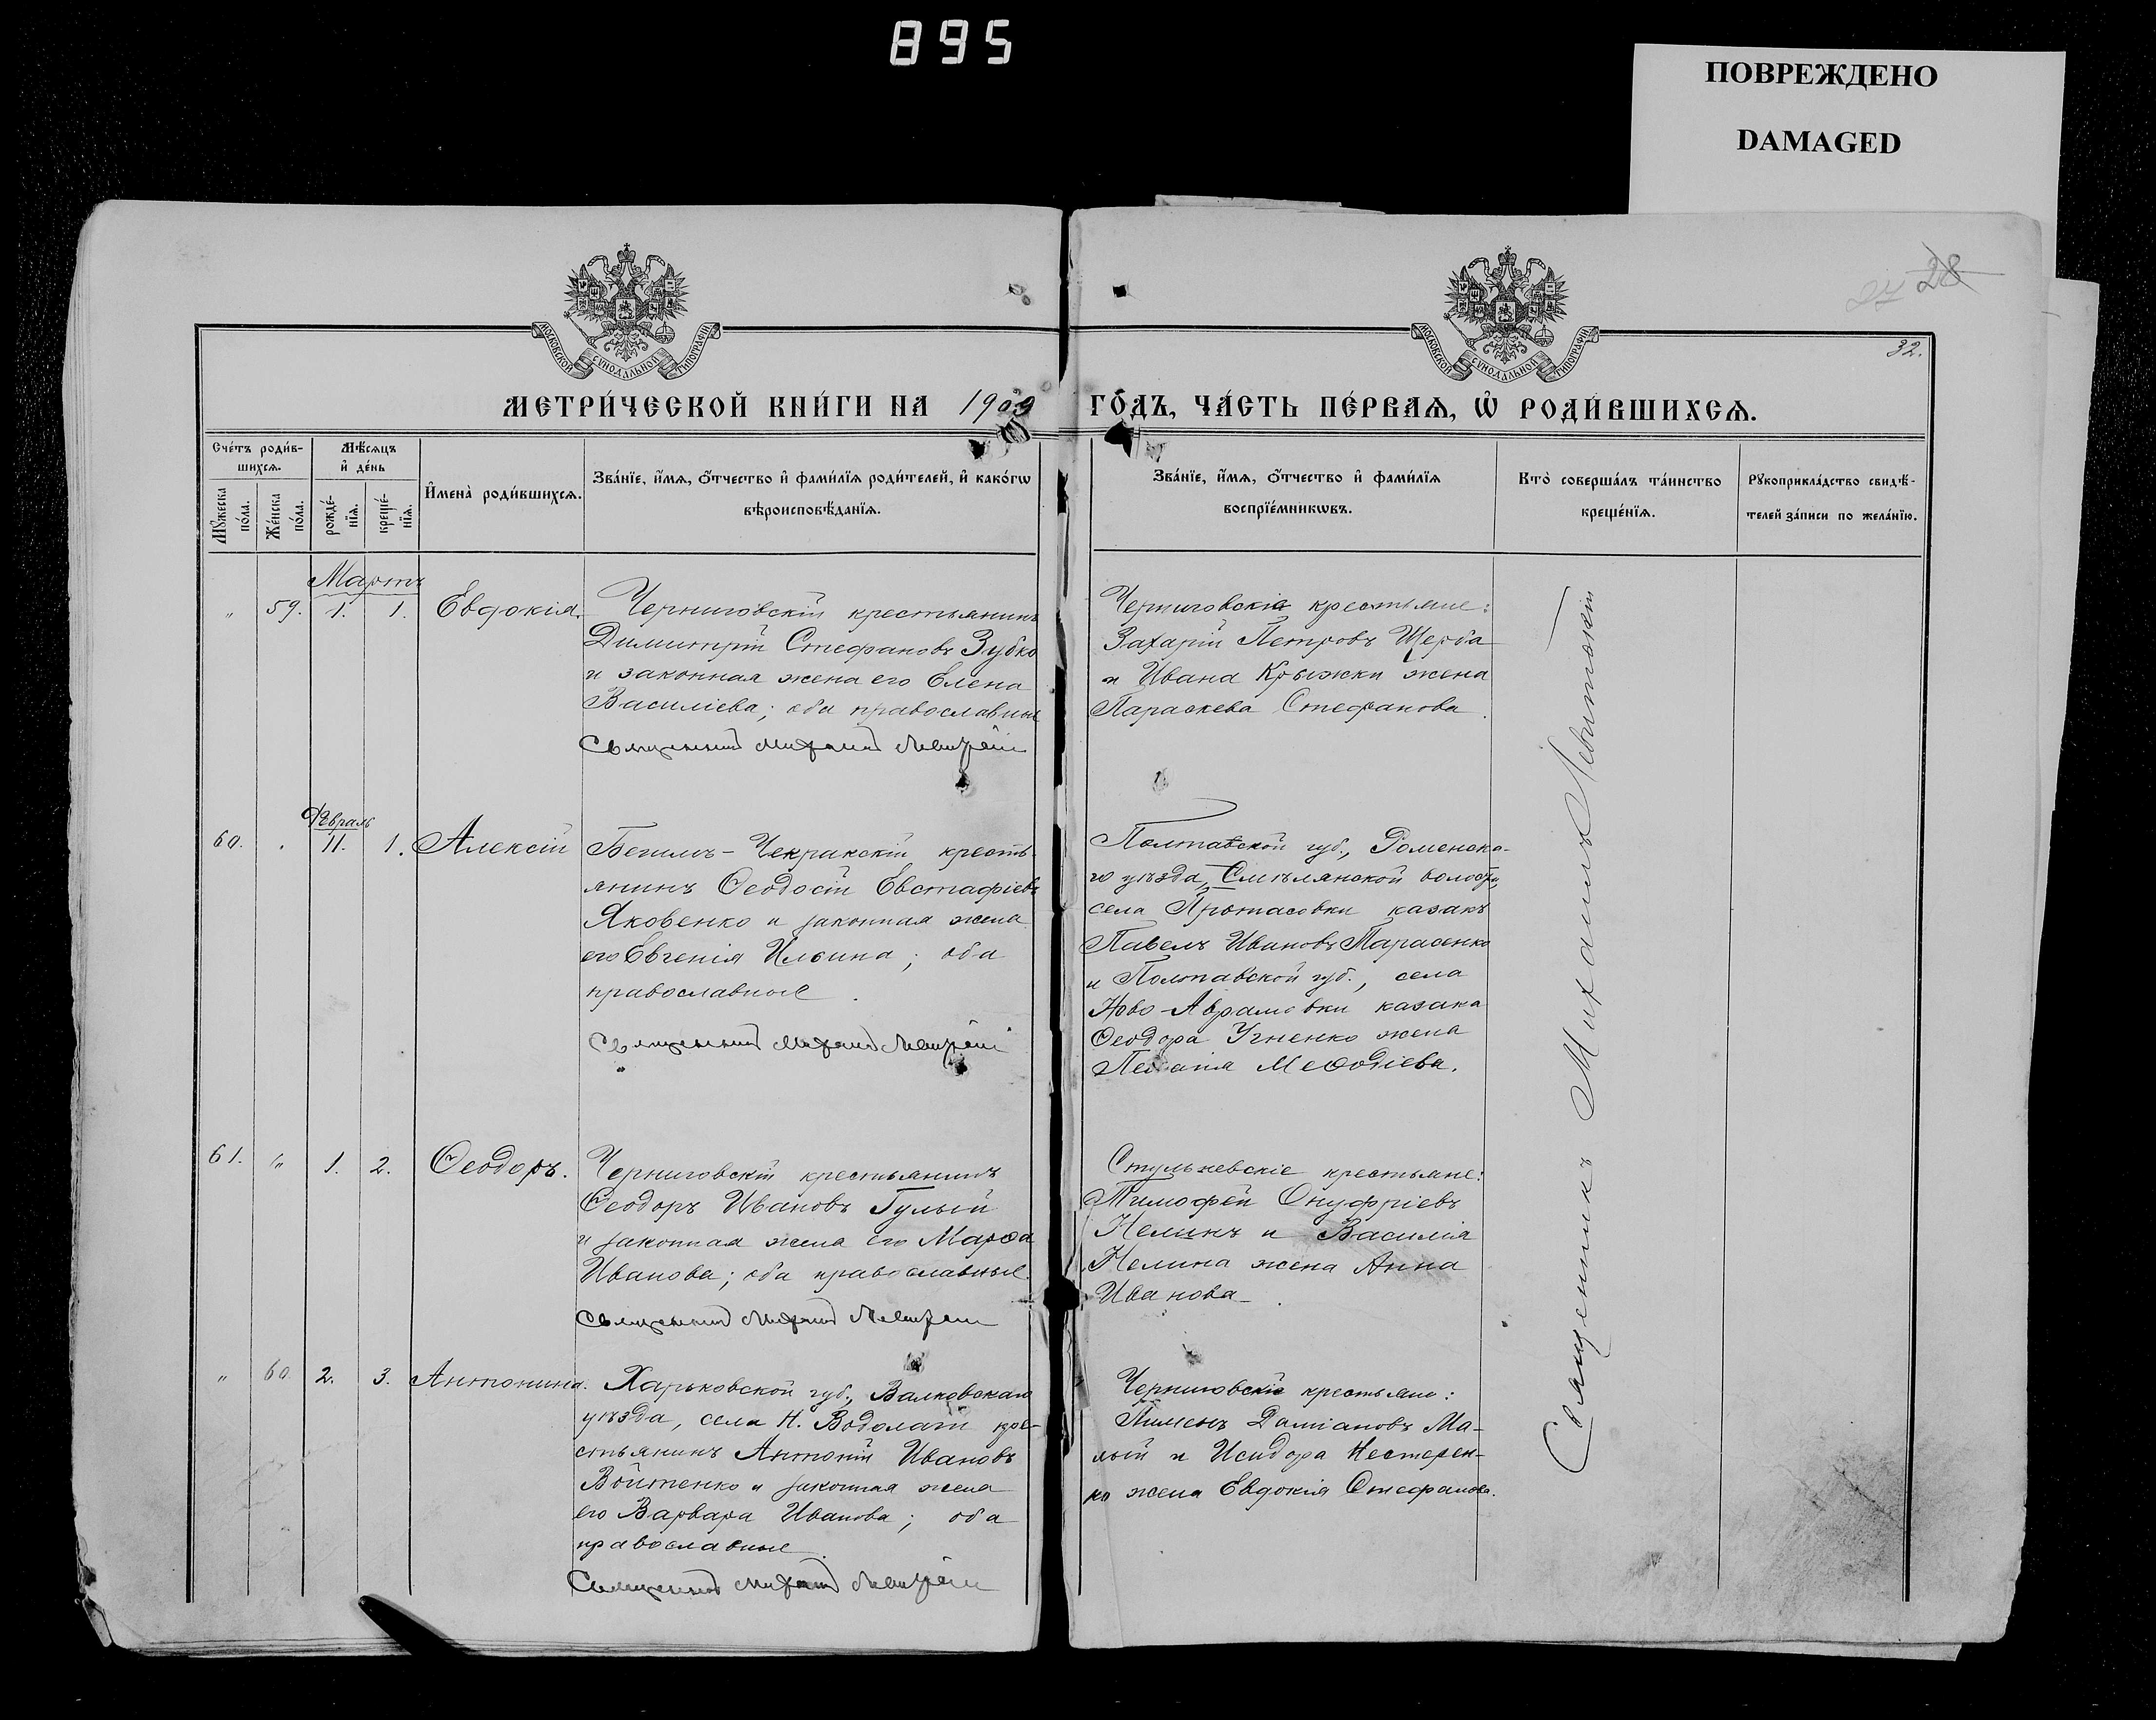 895
ПОВРЕЖДЕНО
DAMAGED
28
32.
МОСКОВСКОЙ СѴНОДАЛЬНОЙ ТИПОГРАФІИ
МОСКОВСКОЙ СѴНОДАЛЬНОЙ ТИПОГРАФІИ
МЕТРИ́ЧЕСКОЙ КНИ́ГИ НА 1909 ГО́ДЪ, ЧА́СТЬ ПЕ́РВАѦ, Ѡ҆ РОДИ́ВШИХСѦ.
Сче́тъ роди́в-
шихсѧ.
Мѹ́жеска
по́ла.
Же́нска
по́ла.
Мѣ́сѧцъ
и҆ де́нь
рожде́-
нїѧ.
креще́-
нїѧ.
И҆мена̀ роди́вшихсѧ.
Зва́нїе, и҆́мѧ, ѻ҆́тчество и҆ фами́лїѧ роди́телей, и҆ како́гѡ
вѣроисповѣ́данїѧ.
Зва́нїе, и҆́мѧ, ѻ҆́тчество и҆ фами́лїѧ
воспрїе́мникѡвъ.
Кто̀ соверша́лъ та́инство
креще́нїѧ.
Рꙋкоприкла́дство свидѣ́-
телей за́писи по жела́нїю.
Мартъ
„ 59. 1. 1. Евдокія.
Черниговскій крестьянинъ
Димитрій Стефановъ Зубко
и законная жена его Елена
Василіева; оба православные
Священникъ Михаилъ Левитскій
Черниговскіе крестьяне:
Захарій Петровъ Щерба
и Ивана Крыжки жена
Параскева Стефанова.
Февраль
60. „ 11. 1. Алексій
Бегимъ-Чекракскій кресть-
янинъ Ѳеодосій Евстафіевъ
Яковенко и законная жена
его Евгенія Ильина; оба
православные.
Священникъ Михаилъ Левитскій
Полтавской губ., Роменска-
го уѣзда, Смѣлянской волости,
села Протасовки казакъ
Павелъ Ивановъ Тарасенко
и Полтавской губ., села
Ново-Аврамовки казака
Ѳеодора Угненко жена
Пелагія Меѳодіева.
61. „ 1. 2. Ѳеодоръ.
Черниговскій крестьянинъ
Ѳеодоръ Ивановъ Гулый
и законная жена его Марѳа
Иванова; оба православные.
Священникъ Михаилъ Левитскій
Стульневскіе крестьяне:
Тимофей Онуфріевъ
Нелинъ и Василія
Нелина жена Анна
Иванова.
„ 60. 2. 3. Антонина.
Харьковской губ., Валковскаго
уѣзда, села Н. Водолаги кре-
стьянинъ Антоній Ивановъ
Войтенко и законная жена
его Варвара Иванова; оба
православные.
Священникъ Михаилъ Левитскій
Черниговскіе крестьяне:
Пименъ Даміановъ Ма-
лый и Исидора Нестерен-
ко жена Евдокія Стефанова.
Священникъ Михаилъ Левитскій